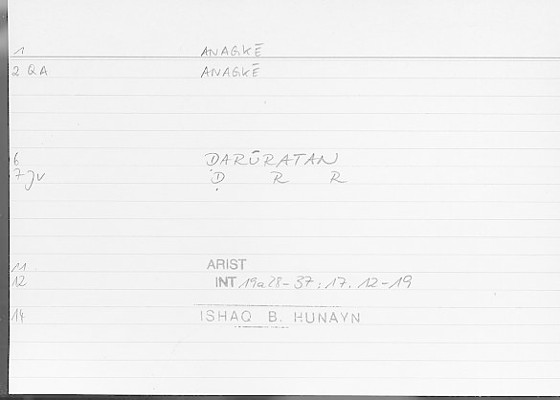 1 ANAGKĒ
2 QA ANAGKĒ
6 ḌARŪRATAN
7 JV Ḍ R R
11 ARIST
12 INT 19a28-37: 17. 12-19
14 ISHAQ B. HUNAYN